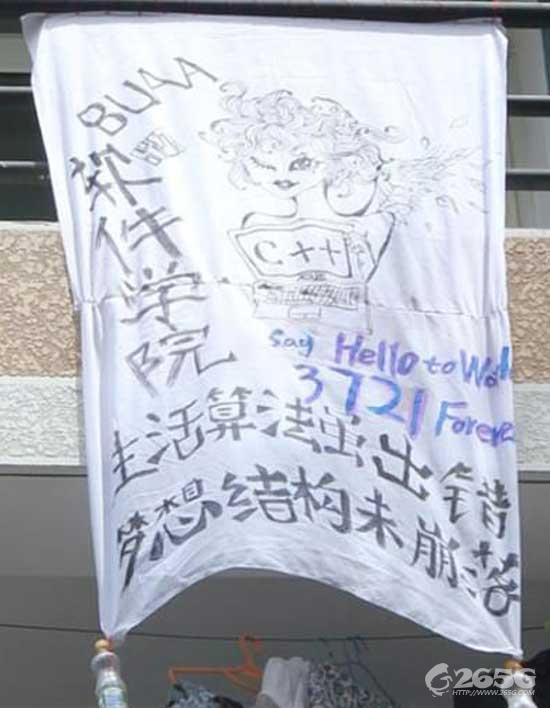 BUAA
软件学院
C++
say Hello to
3721 Forever
生活算法虽出错
梦想结构未崩落
265G
HTTP://WWW.265G.COM